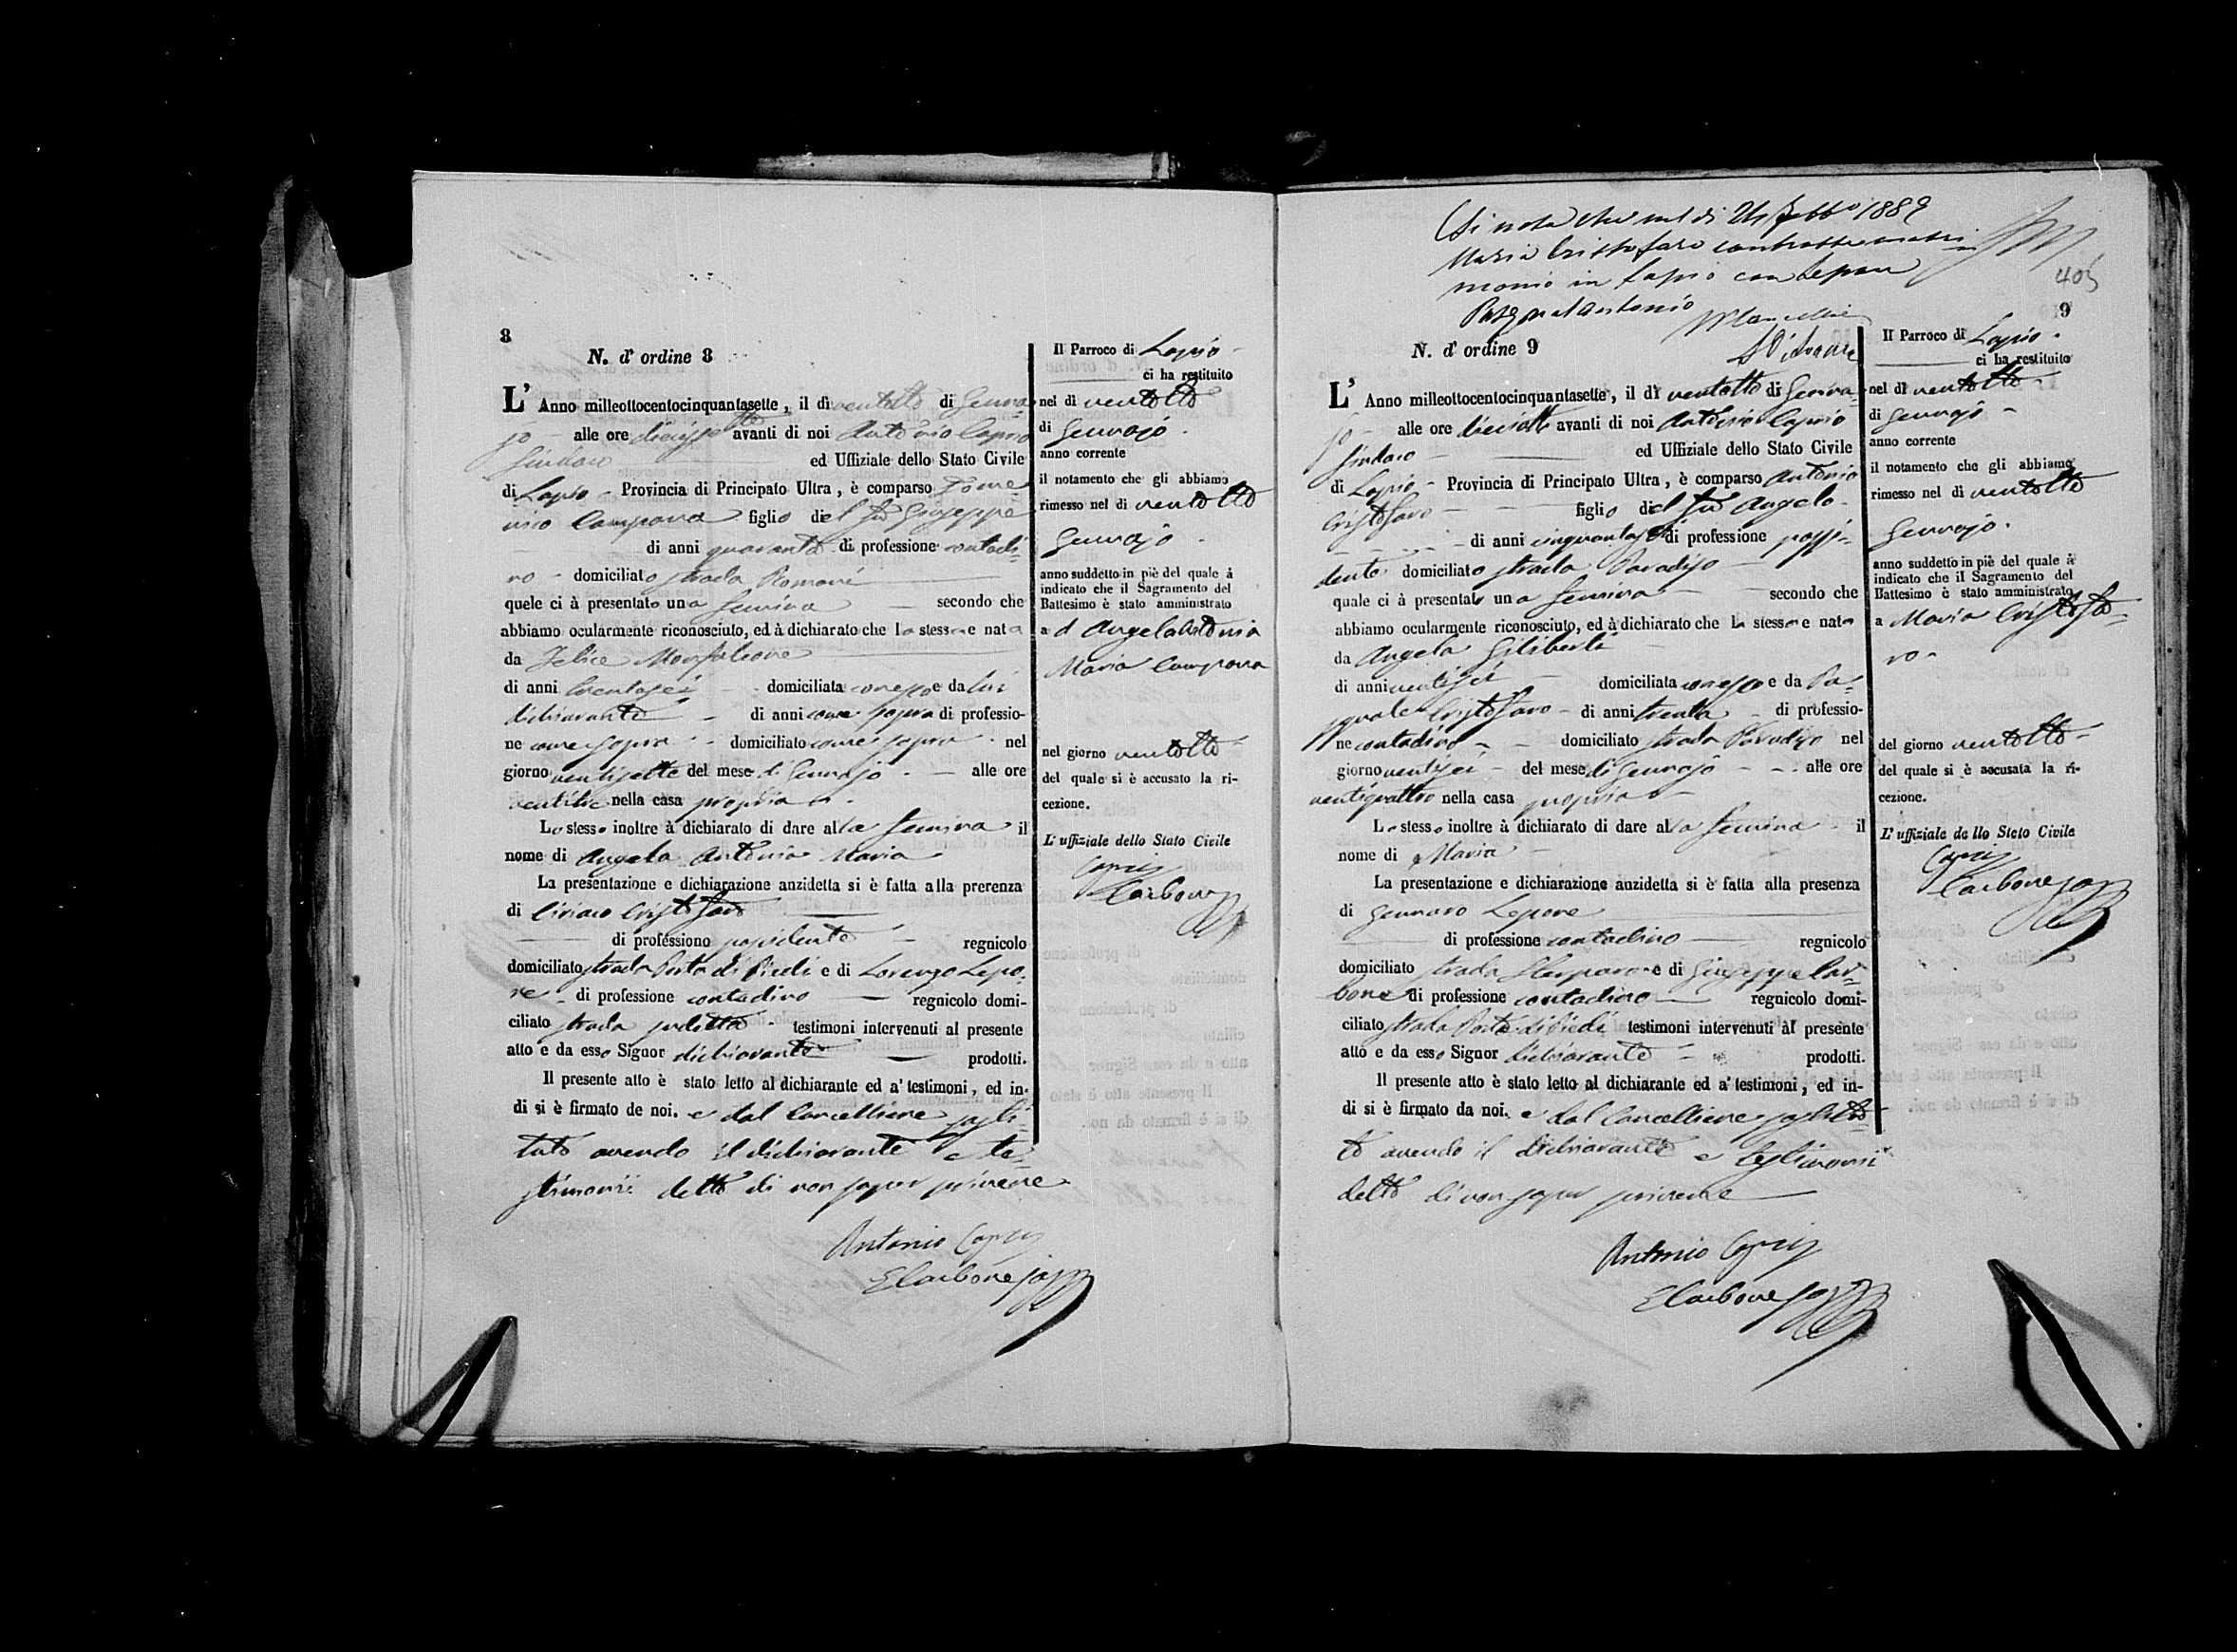 8
N. d' ordine 8
L' Anno milleottocentocinquantasette, il dì ventotto di Genna=
jo - alle ore avanti di noi Antonio Caprio
Sindaco ed Uffiziale dello Stato Civile
di Lapio - Provincia di Principato Ultra, è comparso Dome=
nico Campana figlio del fu Giuseppe
di anni quaranta di professione contadi=
no - domiciliato strada Romani
quele ci à presentato una femina secondo che
abbiamo ocularmente riconosciuto, ed à dichiarato che la stessa e nata
da Felice
di anni trentasei domiciliata con esso e da lui
dichiarante - di anni come sopra di professio-
ne come sopra - domiciliato come sopra - nel
giorno ventisette del mese di Gennajo - alle ore
ventitre nella casa propria
Lo stesso inoltre à dichiarato di dare alla femina il
nome di Angela Antonia Maria
La presentazione e dichiarazione anzidetta si è fatta alla prerenza
di Ciriaco Cristofaro
di professiono possidente regnicolo
domiciliato strada Porta di Piedi e di Lorenzo Lepo=
re - di professione contadino regnicolo domi-
ciliato strada testimoni intervenuti al presente
atto e da esso Signor dichiarante prodotti.
Il presente atto è stato letto al dichiarante ed a' testimoni, ed in-
di si è firmato de noi. e dal Cancelliere sosti=
tuto avendo il dichiarante e te=
stimonii detto di non saper scrivere
Antonio Caprio
E Carbone
Il Parroco di Lapio -
ci ha restituito
nel dì ventotto
di Gennajo.
anno corrente
il notamento che gli abbiamo
rimesso nel di ventotto
Gennajo -
anno suddetto in piè del quale à
indicato che il Sagramento del
Battesimo è stato amministrato
a d Angela Antonia
Maria Campana
nel giorno ventotto
del quale si è accusato la ri-
cezione.
L' uffiziale dello Stato Civile
Caprio
Carbone
Si nota che nel di 24 Febb° 188
Maria Cristofaro contrasse matri
monio in Lapio con Lepore
Pasqual antonio
405
9
N. d' ordine 9
L' Anno milleottocentocinquantasette, il dì ventotto di Genna=
jo - alle ore dieciotto avanti di noi Antonio Caprio
Sindaco - ed Uffiziale dello Stato Civile
di Lapio - Provincia di Principato Ultra, è comparso Antonio
Cristofaro - figlio del fu Angelo -
di anni di professione possi=
dente domiciliato strada Paradiso
quale ci à presentato una femina secondo che
abbiamo ocularmente riconosciuto, ed à dichiarato che la stessa e nata
da Angela Giliberti
di anni ventisei domiciliata con esso e da Pa=
squale Cristofaro - di anni trenta - di professio-
ne contadino - domiciliato strada Paradiso nel
giorno ventisei - del mese di Gennajo - alle ore
ventiquattro nella casa propria
Lo stesso inoltre à dichiarato di dare alla femina - il
nome di Maria
La presentazione e dichiarazione anzidetta si è fatta alla presenza
di Gennaro Lepore
di professione contadino regnicolo
domiciliato strada e di Giuseppe Car=
bone di professione contadino regnicolo domi-
ciliato strada Porta di Piedi testimoni intervenuti al presente
atto e da esso Signor dichiarante prodotti.
Il presente atto è stato letto al dichiarante ed a' testimoni, ed in-
di si è firmato da noi. e dal Cancelliere sostitu=
to avendo il dichiarante e testimonii
detto di non saper scrivere
Antonio Caprio
E Carbone
Il Parroco di Lapio -
ci ha restituito
nel dì ventotto
di Gennajo -
anno corrente
il notamento che gli abbiamo
rimesso nel di ventotto
Gennajo.
anno suddetto in piè del quale à
indicato che il Sagramento del
Battesimo è stato amministrato
a Maria Cristofa=
ro -
del giorno ventotto
del quale si è accusata la ri-
cezione.
L' uffiziale de llo Stato Civile
Caprio
Carbone